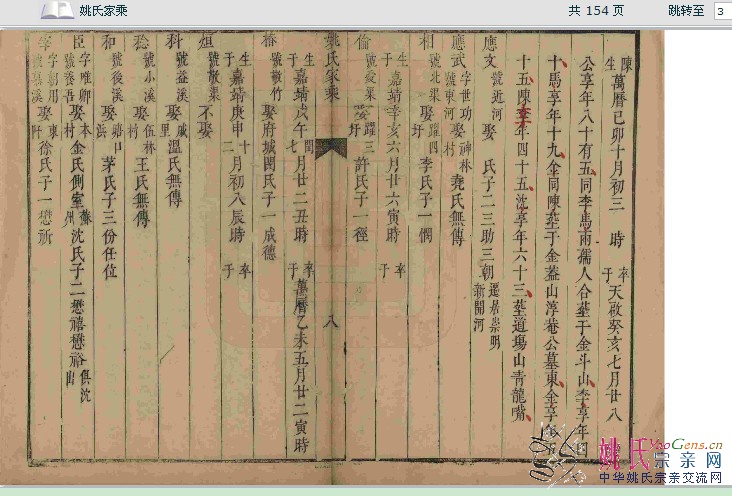 姚氏家乘
共 154 页
跳转至
3
陳生萬曆己卯十月初三 時 卒于天啟癸亥七月廿八
公享年八十有五同李馬兩孺人合塟于金斗山李享年
十馬享年十九金同陳塟于金蓋山淳巷公墓東金享年
十五陳享年四十五沈享年六十三塟道塲山青龍嘴
應文 號近河 娶 氏子二三助三朝 遷居崇明新開河
應武 字世功號東河 娶神林村堯氏無傳
相 號北渠 娶躍四圩李氏子一憪
生于嘉靖辛亥六月廿六寅時 卒于
偷 號愛渠 娶躍三圩許氏子一徑
姚氏家乘
八
生于嘉靖戊午閏七月廿二丑時 卒于萬曆乙未五月廿二寅時
椿 號敬竹 娶府城閔氏子一成德
生于嘉靖庚申十二月初八辰時 卒于
烜 號敬渠 不娶
科 號益溪 娶戚里溫氏無傳
稔 號小溪 娶伍林村王氏無傳
和 號後溪 娶 茅氏子三份任位
臣 字唯卿號養吾 娶本村金氏側室蘇州沈氏子二懋禧懋裕俱沈出
宰 字朝用號慎溪 娶東阡徐氏子一懋祈
姚氏宗亲网
YaoGens.cn
中华姚氏宗亲交流网